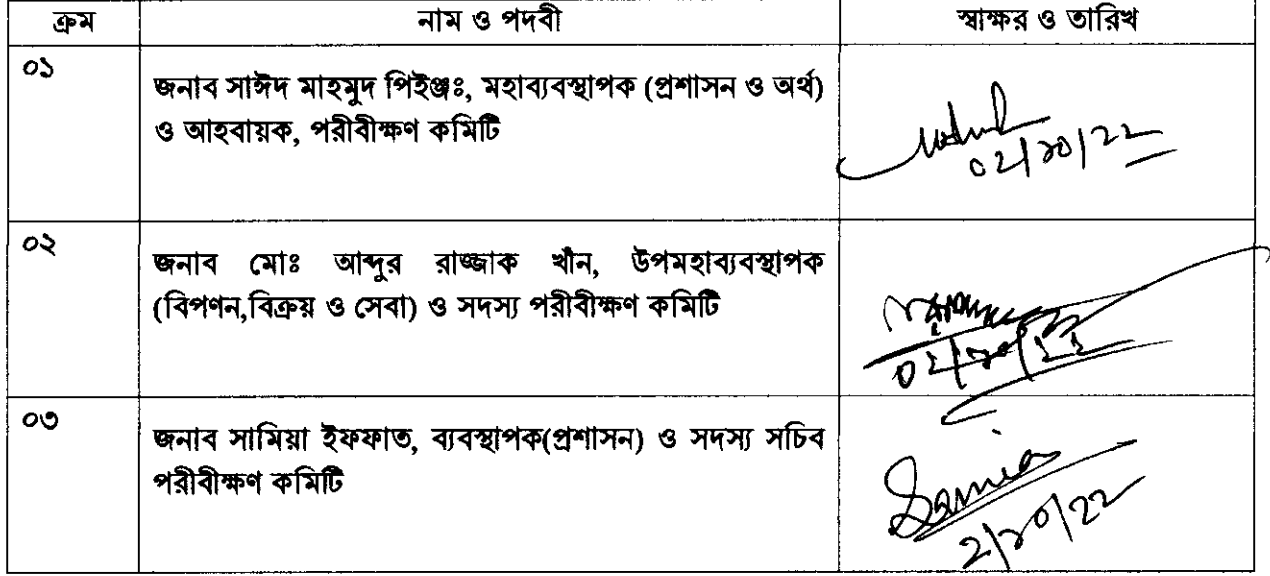 ক্রম নাম ও পদবী স্বাক্ষর ও তারিখ
০১ জনাব সাঈদ মাহমুদ পিইঞ্জঃ, মহাব্যবস্থাপক (প্রশাসন ও অর্থ)
ও আহবায়ক, পরীবীক্ষণ কমিটি
০২/১০/২২
০২ জনাব মোঃ আব্দুর রাজ্জাক খাঁন, উপমহাব্যবস্থাপক
(বিপণন,বিক্রয় ও সেবা) ও সদস্য পরীবীক্ষণ কমিটি
০২/১০/২২
০৩ জনাব সামিয়া ইফফাত, ব্যবস্থাপক(প্রশাসন) ও সদস্য সচিব
পরীবীক্ষণ কমিটি
Samia
২/১০/২২